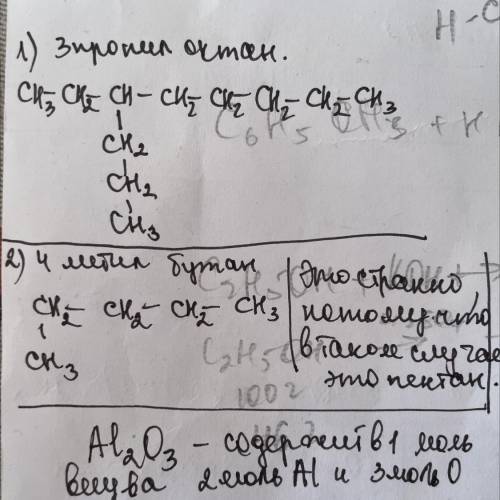 H - C
1) 3 пропил октан.
CH₃-CH₂-CH-CH₂-CH₂-CH₂-CH₂-CH₃
CH₂
CH₂
CH₃
C₆H₅ CH₃ + H
2) 4 метил бутан
CH₂- CH₂- CH₂- CH₃
CH₃
это странно
потому что
в таком случае
это пентан.
C₂H₅OH
100 г
Al₂O₃ - содержит в 1 моль
вещ ва 2 моль Al и 3 моль O